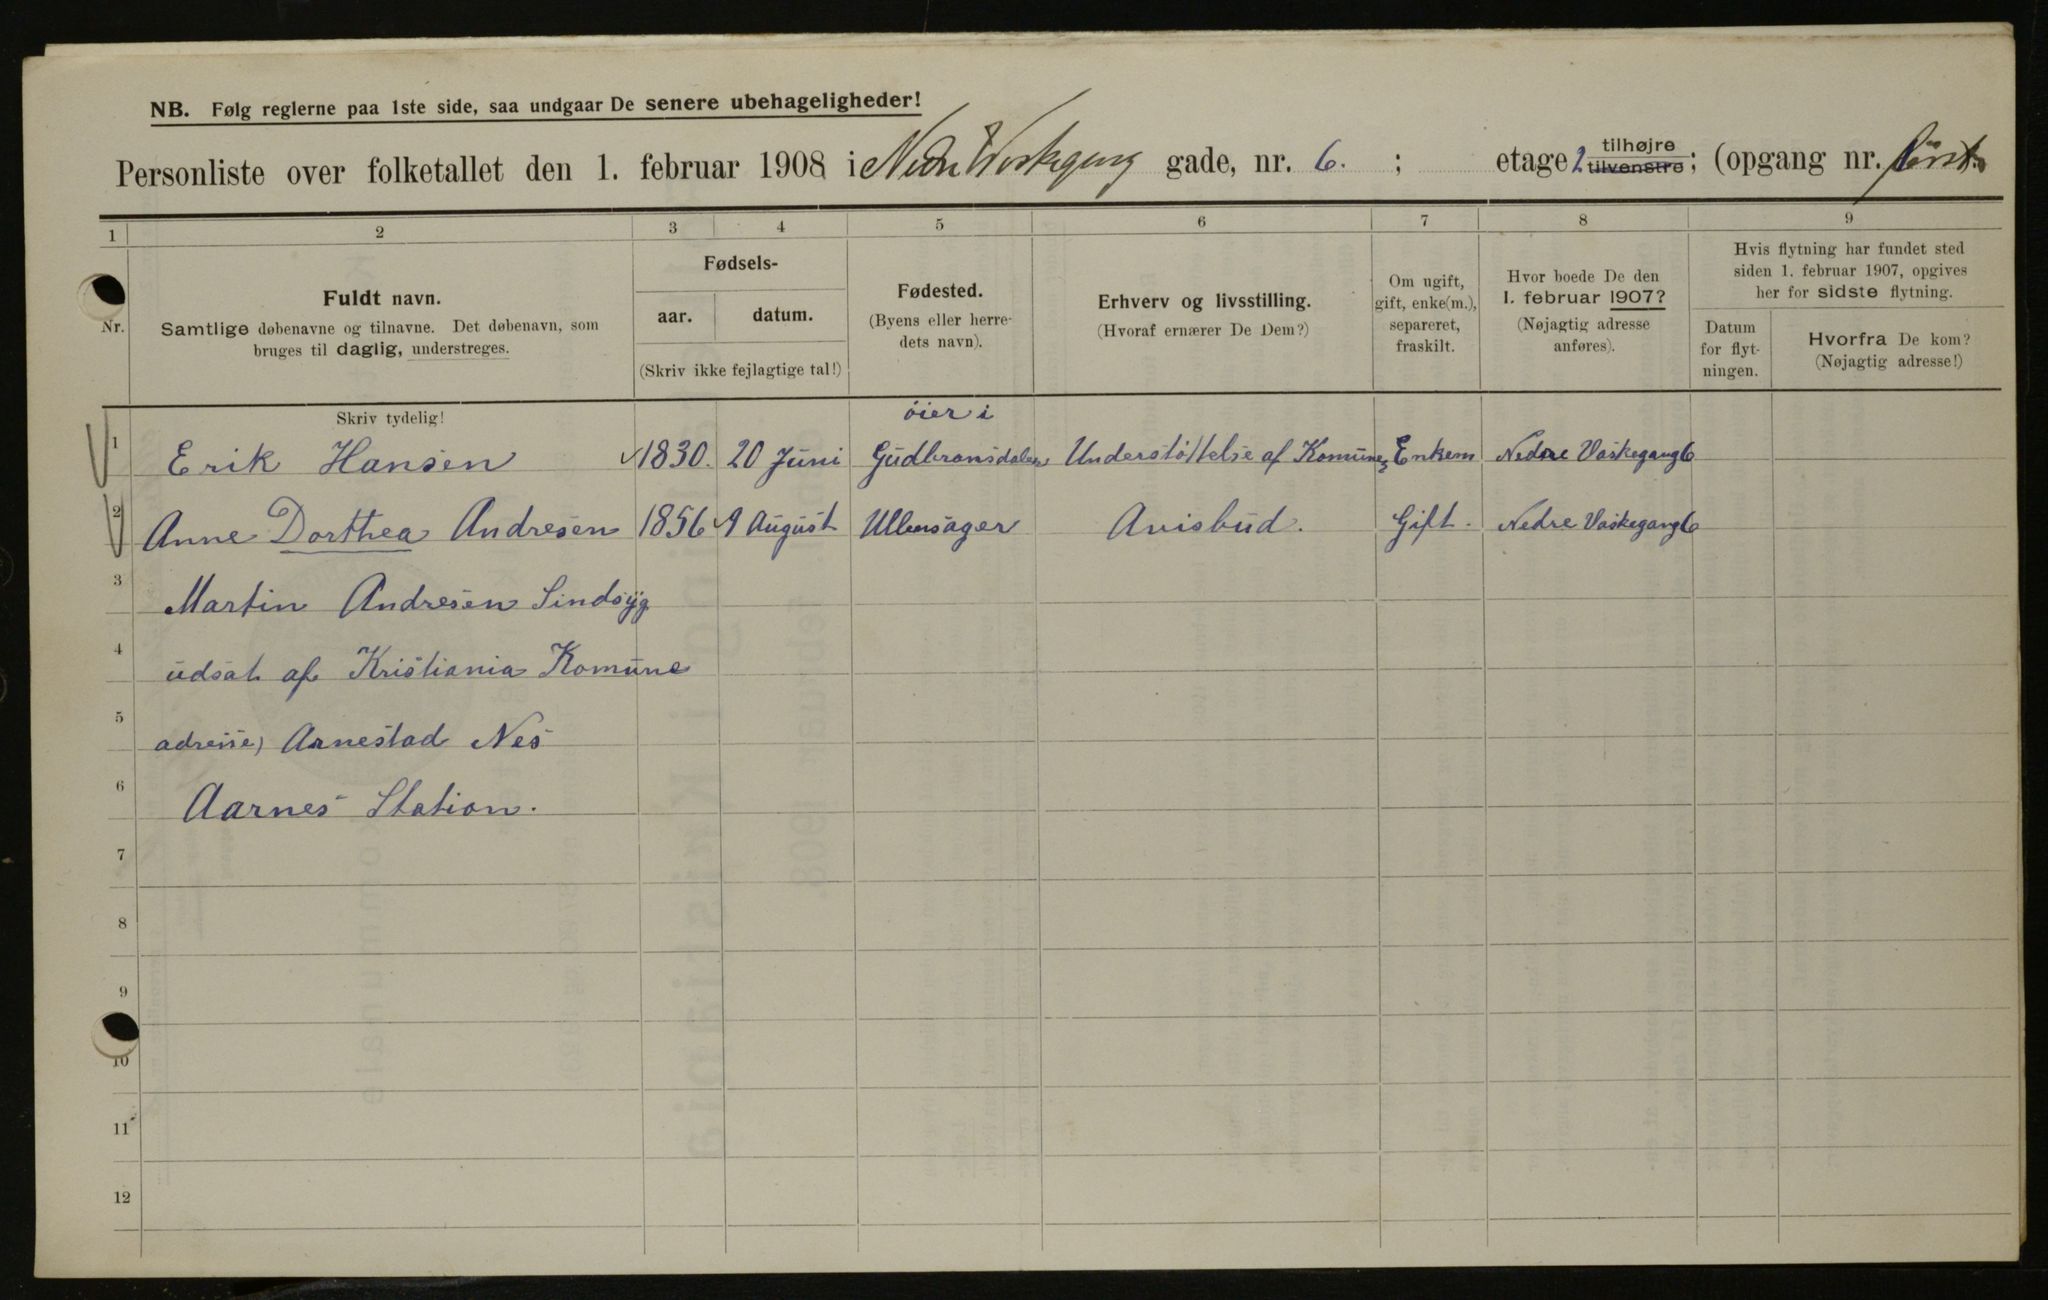 NB. Følg reglerne paa 1ste side, saa undgaar De senere ubehageligheder!
Personliste over folketallet den 1. februar 1908 i Nedre Vaskegang gade, nr. 6. ; etage 2 tilhøjre tilvenstre; (opgang nr.
1 2 3 4 5 6 7 8 9
Nr.
Fuldt navn.
Samtlige døbenavne og tilnavne. Det døbenavn, som
bruges til daglig, understreges.
Fødsels-
aar. datum.
(Skriv ikke fejlagtige tal!)
Fødested.
(Byens eller herre-
dets navn).
Erhverv og livsstilling.
(Hvoraf ernærer De Dem?)
Om ugift,
gift, enke(m.),
separeret,
fraskilt.
Hvor boede De den
1. februar 1907?
(Nøjagtig adresse
anføres).
Hvis flytning har fundet sted
siden 1. februar 1907, opgives
her for sidste flytning.
Datum
for flyt-
ningen.
Hvorfra De kom?
(Nøjagtig adresse!)
Skriv tydelig!
öier i
1 Erik Hansen 1830. 20 Juni Gudbransdalen Understøttelse af Komune Enkem Nedre Vaskegang 6
2 Anne Dorthea Andresen 1856 9 August Ullensager Avisbud. Gift. Nedre Vaskegang 6
3 Martin Andresen Sindsyg
4 udsat af Kristiania Komune
5 adresse) Arnestad Nes
6 Aarnes Station.
7
8
9
10
11
12